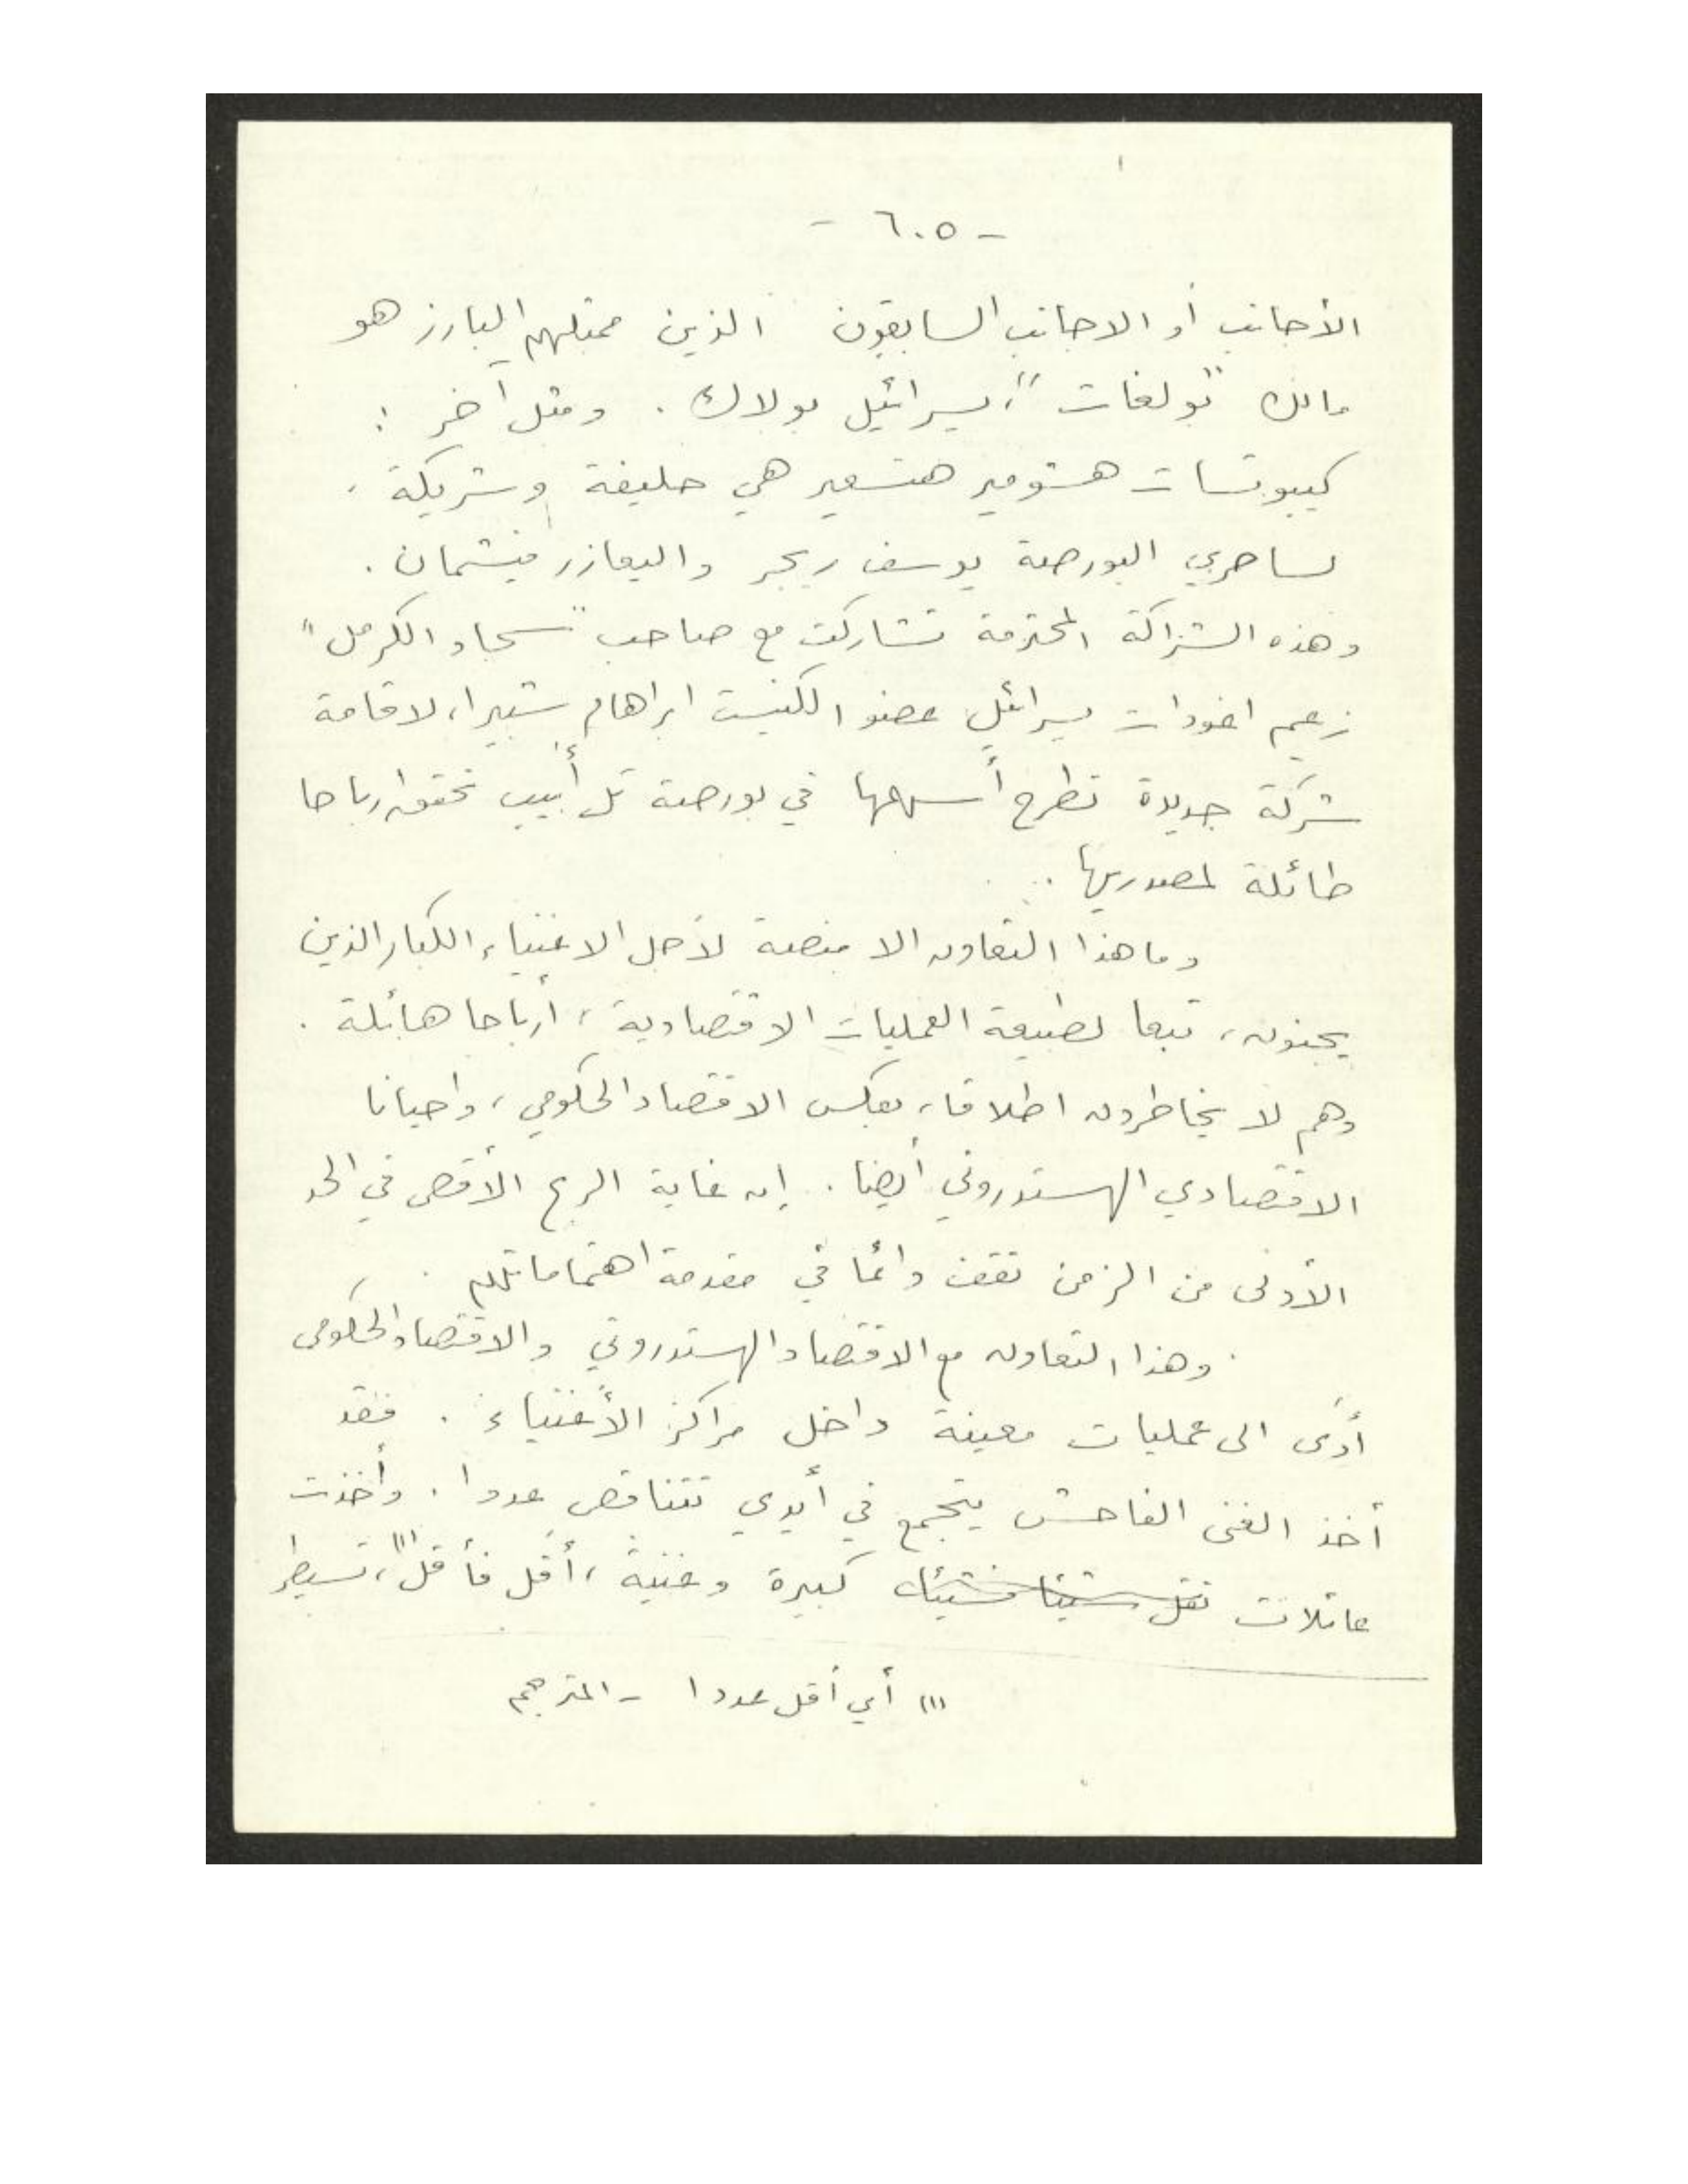 - ٦٠٥ -
الأجانب أو الاجانب السابقون الذين ممثلهم البارز هو
مالك "بولغات"، يسرائيل بولاك . ومثل آخر :
كيبوتسات هشومير هتسعير هي حليفة وشريكة ،
لساحري البورصة يوسف ريجر واليعازر فيشمان .
وهذه الشراكة المحترمة تشاركت مع صاحب "سجاد الكرمل"
زعيم اغودات يسرائيل عضو الكنيست ابراهام شبيرا، لاقامة
شركة جديدة تطرح أسهمها في بورصة تل أبيب تحقق ارباحا
طائلة لمصدريها ..
وما هذا التعاون الا منصة لأجل الاغنياء الكبار الذين
يجنون، تبعا لطبيعة العمليات الاقتصادية ، أرباحا هائلة .
وهم لا يخاطرون اطلاقا، بعكس الاقتصاد الحكومي ، واحيانا
الاقتصادي الهستدروتي أيضا . إن غاية الربح الأقصى في الحد
الأدنى من الزمن تقف دائما في مقدمة اهتماماتهم .
وهذا التعاون مع الاقتصاد الهستدروتي والاقتصاد الحكومي
أدى الى عمليات معينة داخل مراكز الأغنياء . فقد
أخذ الغنى الفاحش يتجمع في أيدي تتناقص عددا . وأخذت
عائلات تقل شيئا فشيئا كبيرة وغنية ، أقل فأقل(١)، تسيطر
(١) أي أقل عددا - المترجم